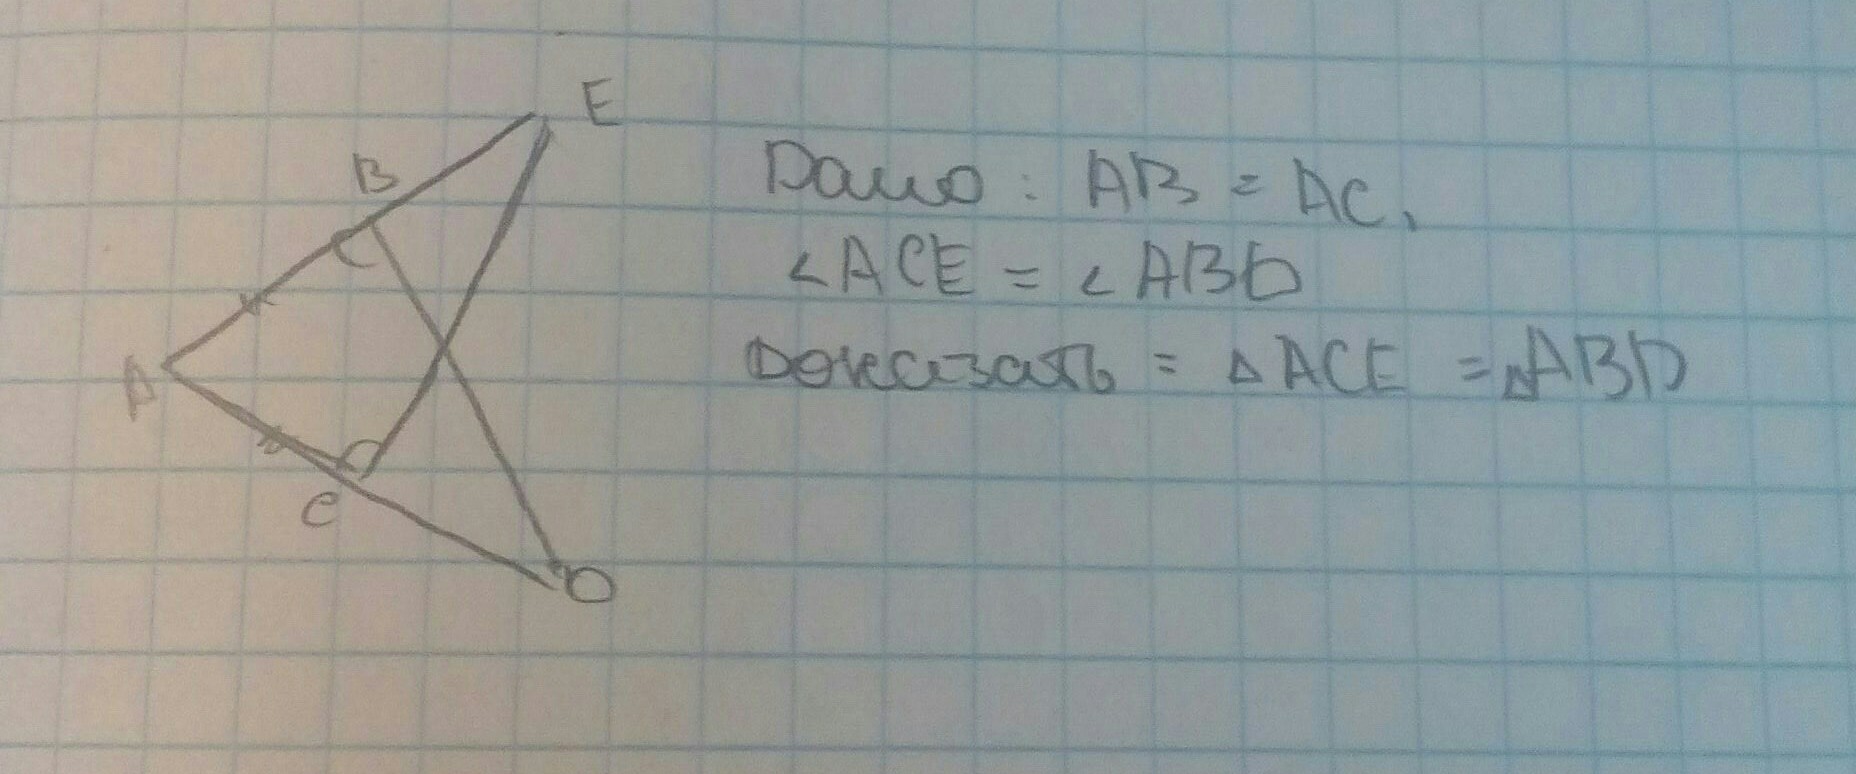 E
B
A
C
D
Дано : AB = AC,
∠ACE = ∠ABD
Доказать = △ACE = △ABD